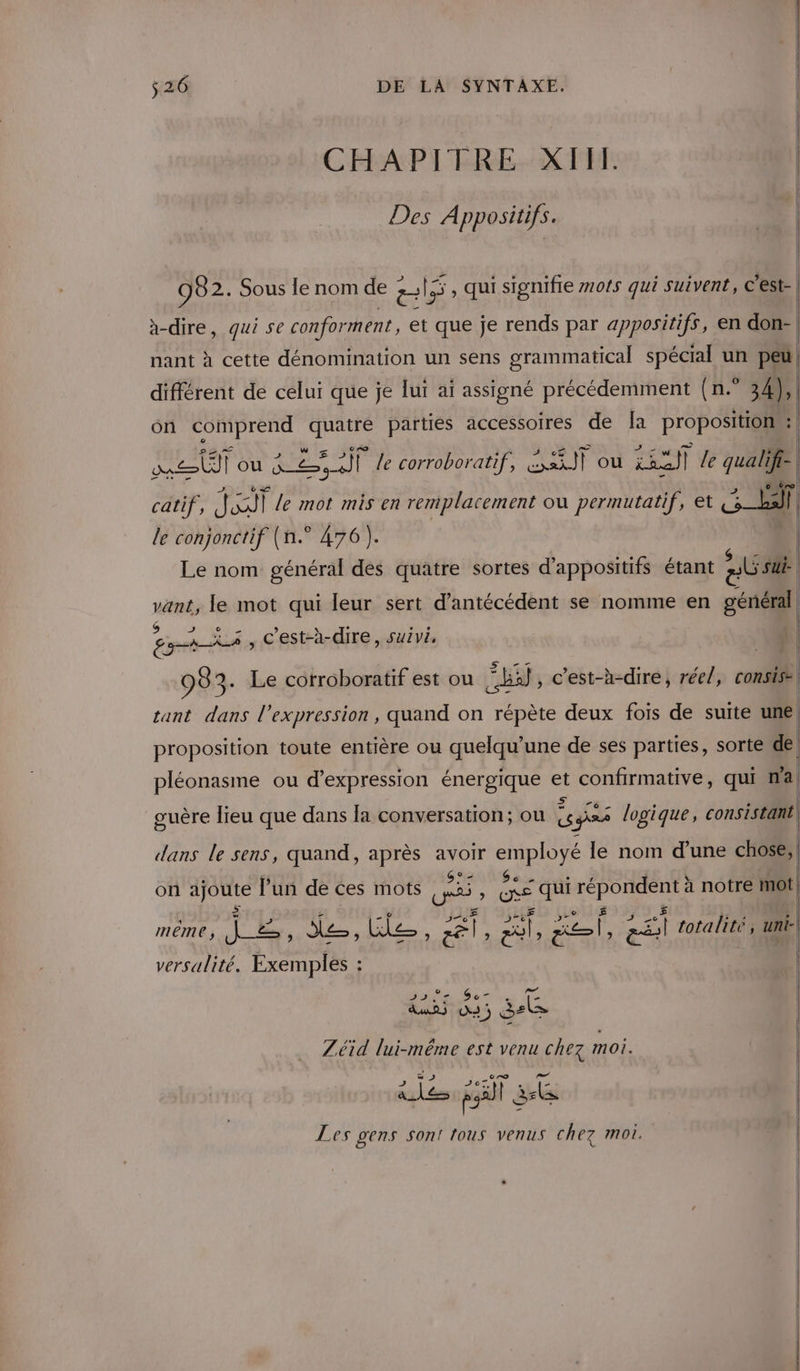 526 DE LA SYNTAXE.
CHAPITRE XIII.
Des Appositifs.
982. Sous le nom de تَوَابِع, qui signifie mots qui suivent, c'est-
à-dire, qui se conforment, et que je rends par appositifs, en don-
nant à cette dénomination un sens grammatical spécial un peu
différent de celui que je lui ai assigné précédemment (n.° 34),
on comprend quatre parties accessoires de la proposition :
ٱلتَّأْكِيدُ ou ٱلتَّوْكِيدُ le corroboratif, ٱلنَّعْتُ ou ٱلصِّفَةُ le qualifi-
catif, ٱلْبَدَلُ le mot mis en remplacement ou permutatif, et ٱلْعَطْفُ
le conjonctif (n.° 476).
Le nom général des quatre sortes d'appositifs étant تَابِعٌ sui-
vant, le mot qui leur sert d'antécédent se nomme en général
مَتْبُوعٌ, c'est-à-dire, suivi.
983. Le corroboratif est ou لَفْظِيٌّ, c'est-à-dire, réel, consis-
tant dans l'expression, quand on répète deux fois de suite une
proposition toute entière ou quelqu'une de ses parties, sorte de
pléonasme ou d'expression énergique et confirmative, qui n'a
guère lieu que dans la conversation; ou مَعْنَوِيٌّ logique, consistant
dans le sens, quand, après avoir employé le nom d'une chose,
on ajoute l'un de ces mots نَفْسٌ, عَيْنٌ qui répondent à notre mot
même, كُلٌّ, كِلَا, كِلْتَا, أَجْمَعُ, أَبْتَعُ, أَكْتَعُ, أَبْصَعُ totalité, uni-
versalité. Exemples :
جَاءَنِي زَيْدٌ نَفْسُهُ
Zéïd lui-même est venu chez moi.
جَاءَنِي ٱلْقَوْمُ كُلُّهُ
Les gens sont tous venus chez moi.